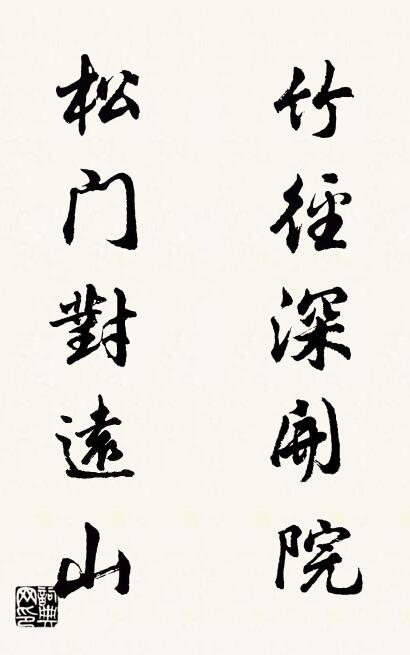 竹徑深開院
松门對遠山